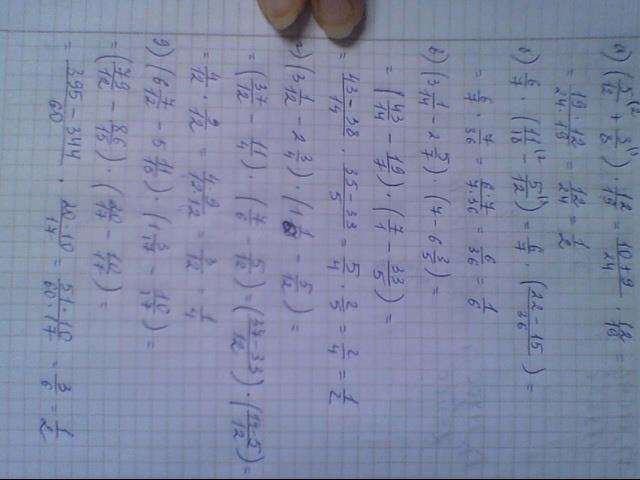 а) (5/12 + 3/8) · 12/19 = (10+9)/24 · 12/19 =
= (19·12)/(24·19) = 12/24 = 1/2
б) 6/7 · (11/18 - 5/12) = 6/7 · ((22-15)/36) =
= 6/7 · 7/36 = (6·7)/(7·36) = 6/36 = 1/6
в) (3 1/14 - 2 5/7) · (7 - 6 3/5) =
= (43/14 - 19/7) · (7/1 - 33/5) =
= (43-38)/14 · (35-33)/5 = 5/14 · 2/5 = 2/14 = 1/7
г) (3 1/12 - 2 3/4) · (1 1/6 - 5/12) =
= (37/12 - 11/4) · (7/6 - 5/12) = (37-33)/12) · (14-5)/12) =
= 4/12 · 9/12 = (4·9)/(12·12) = 3/12 = 1/4
= (79/12 - 86/15) · (20/17 - 10/17) =
= (395-344)/60 · (20-10)/17 = (51·10)/(60·17) = 3/6 = 1/2